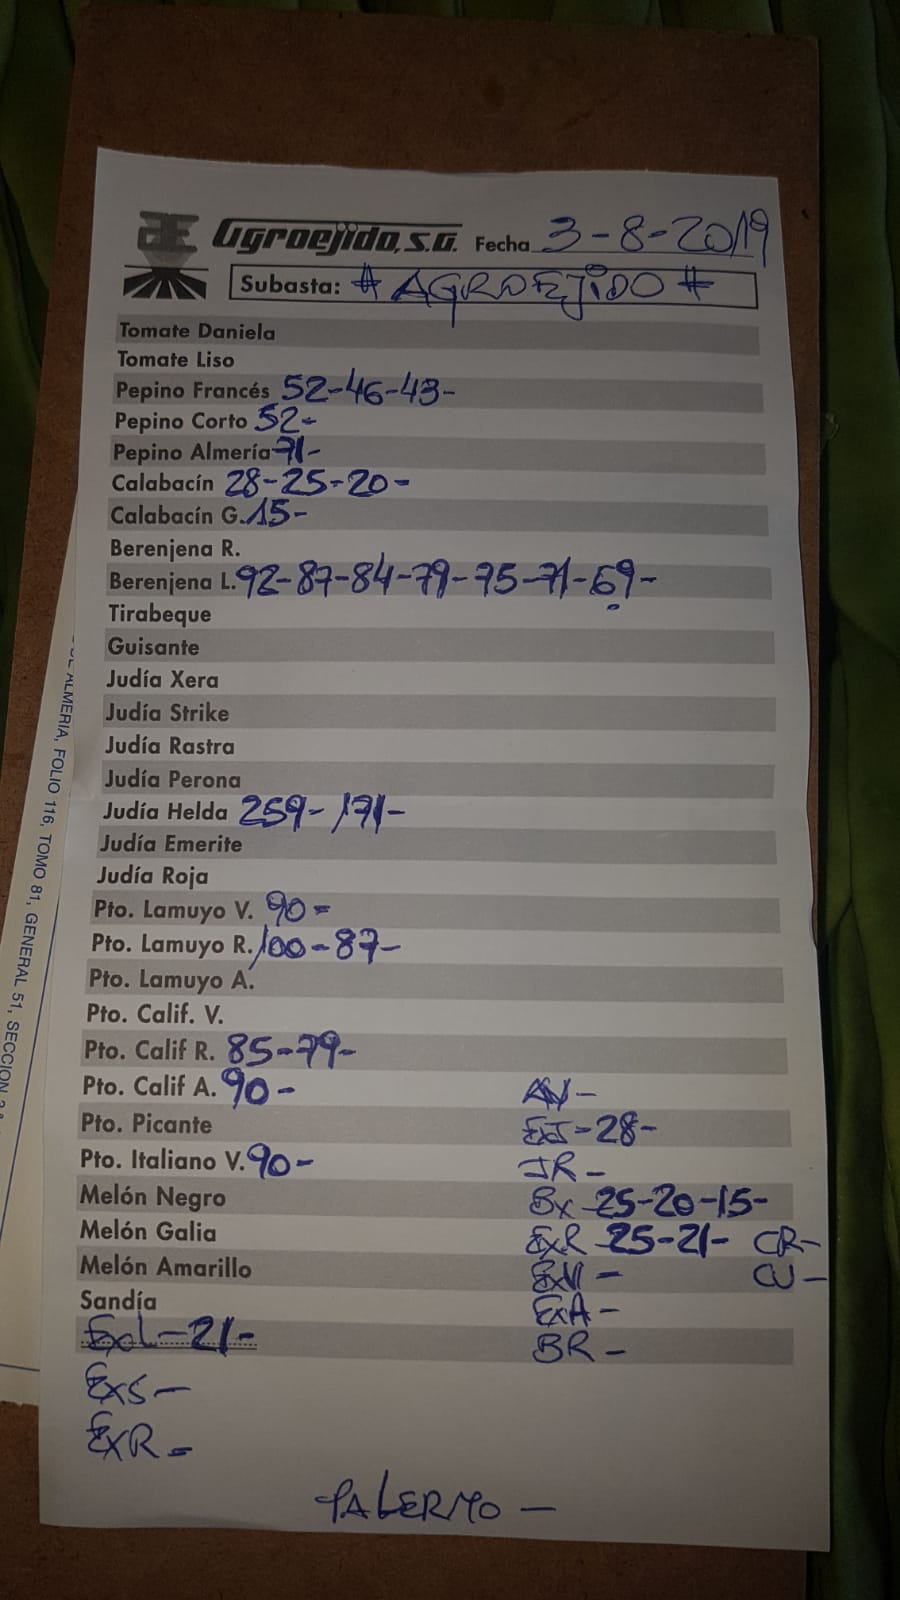 Agroejido, S.A. Fecha 3-8-2019
Subasta: # AGROEJIDO #
Tomate Daniela
Tomate Liso
Pepino Francés 52-46-43-
Pepino Corto 52-
Pepino Almería 71-
Calabacín 28-25-20-
Calabacín G. 15-
Berenjena R.
Berenjena L. 92-87-84-79-75-71-69-
Tirabeque
Guisante
Judía Xera
Judía Strike
Judía Rastra
Judía Perona
Judía Helda 259-171-
Judía Emerite
Judía Roja
Pto. Lamuyo V. 90-
Pto. Lamuyo R. 100-87-
Pto. Lamuyo A.
Pto. Calif. V.
Pto. Calif R. 85-79-
Pto. Calif A. 90-
Pto. Picante
Pto. Italiano V. 90-
Melón Negro
Melón Galia
Melón Amarillo
Sandía
ExL-21-
ExS-
ExR-
EXJ-28-
JR-
Bx 25-20-15-
ExR 25-21- CR-
ExA-
BR-
PALERMO-
ALMERIA, FOLIO 116, TOMO 81, GENERAL 51, SECCION